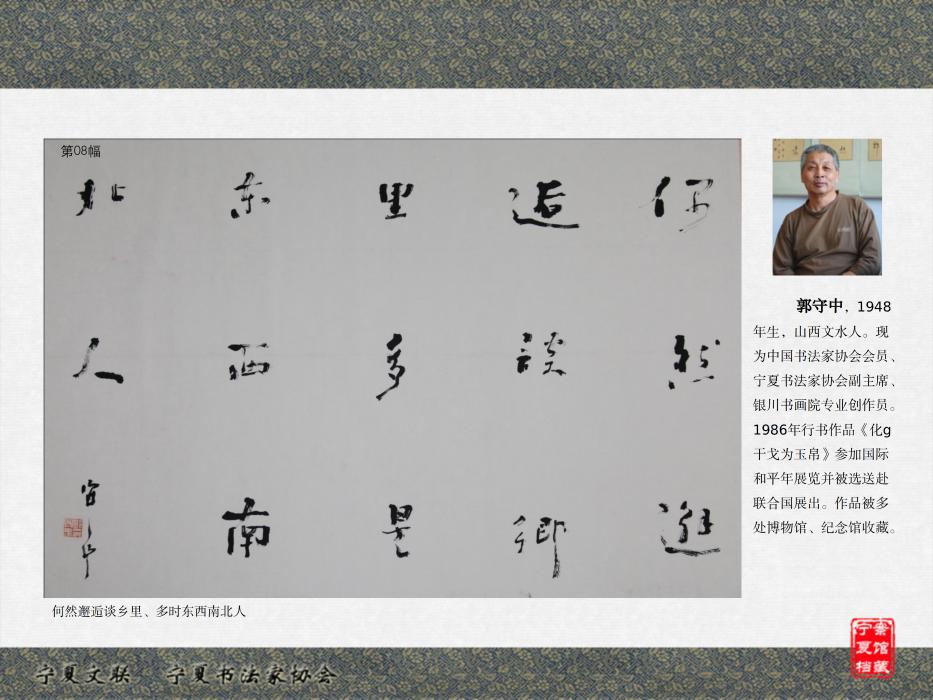 第08幅
然邂
逅談鄉
里多是
东西南
北人
何然邂逅谈乡里、多时东西南北人
郭守中，1948
年生，山西文水人。现
为中国书法家协会会员、
宁夏书法家协会副主席、
银川书画院专业创作员。
1986年行书作品《化g
干戈为玉帛》参加国际
和平年展览并被选送赴
联合国展出。作品被多
处博物馆、纪念馆收藏。
宁夏文联 宁夏书法家协会
宁夏档
案馆藏